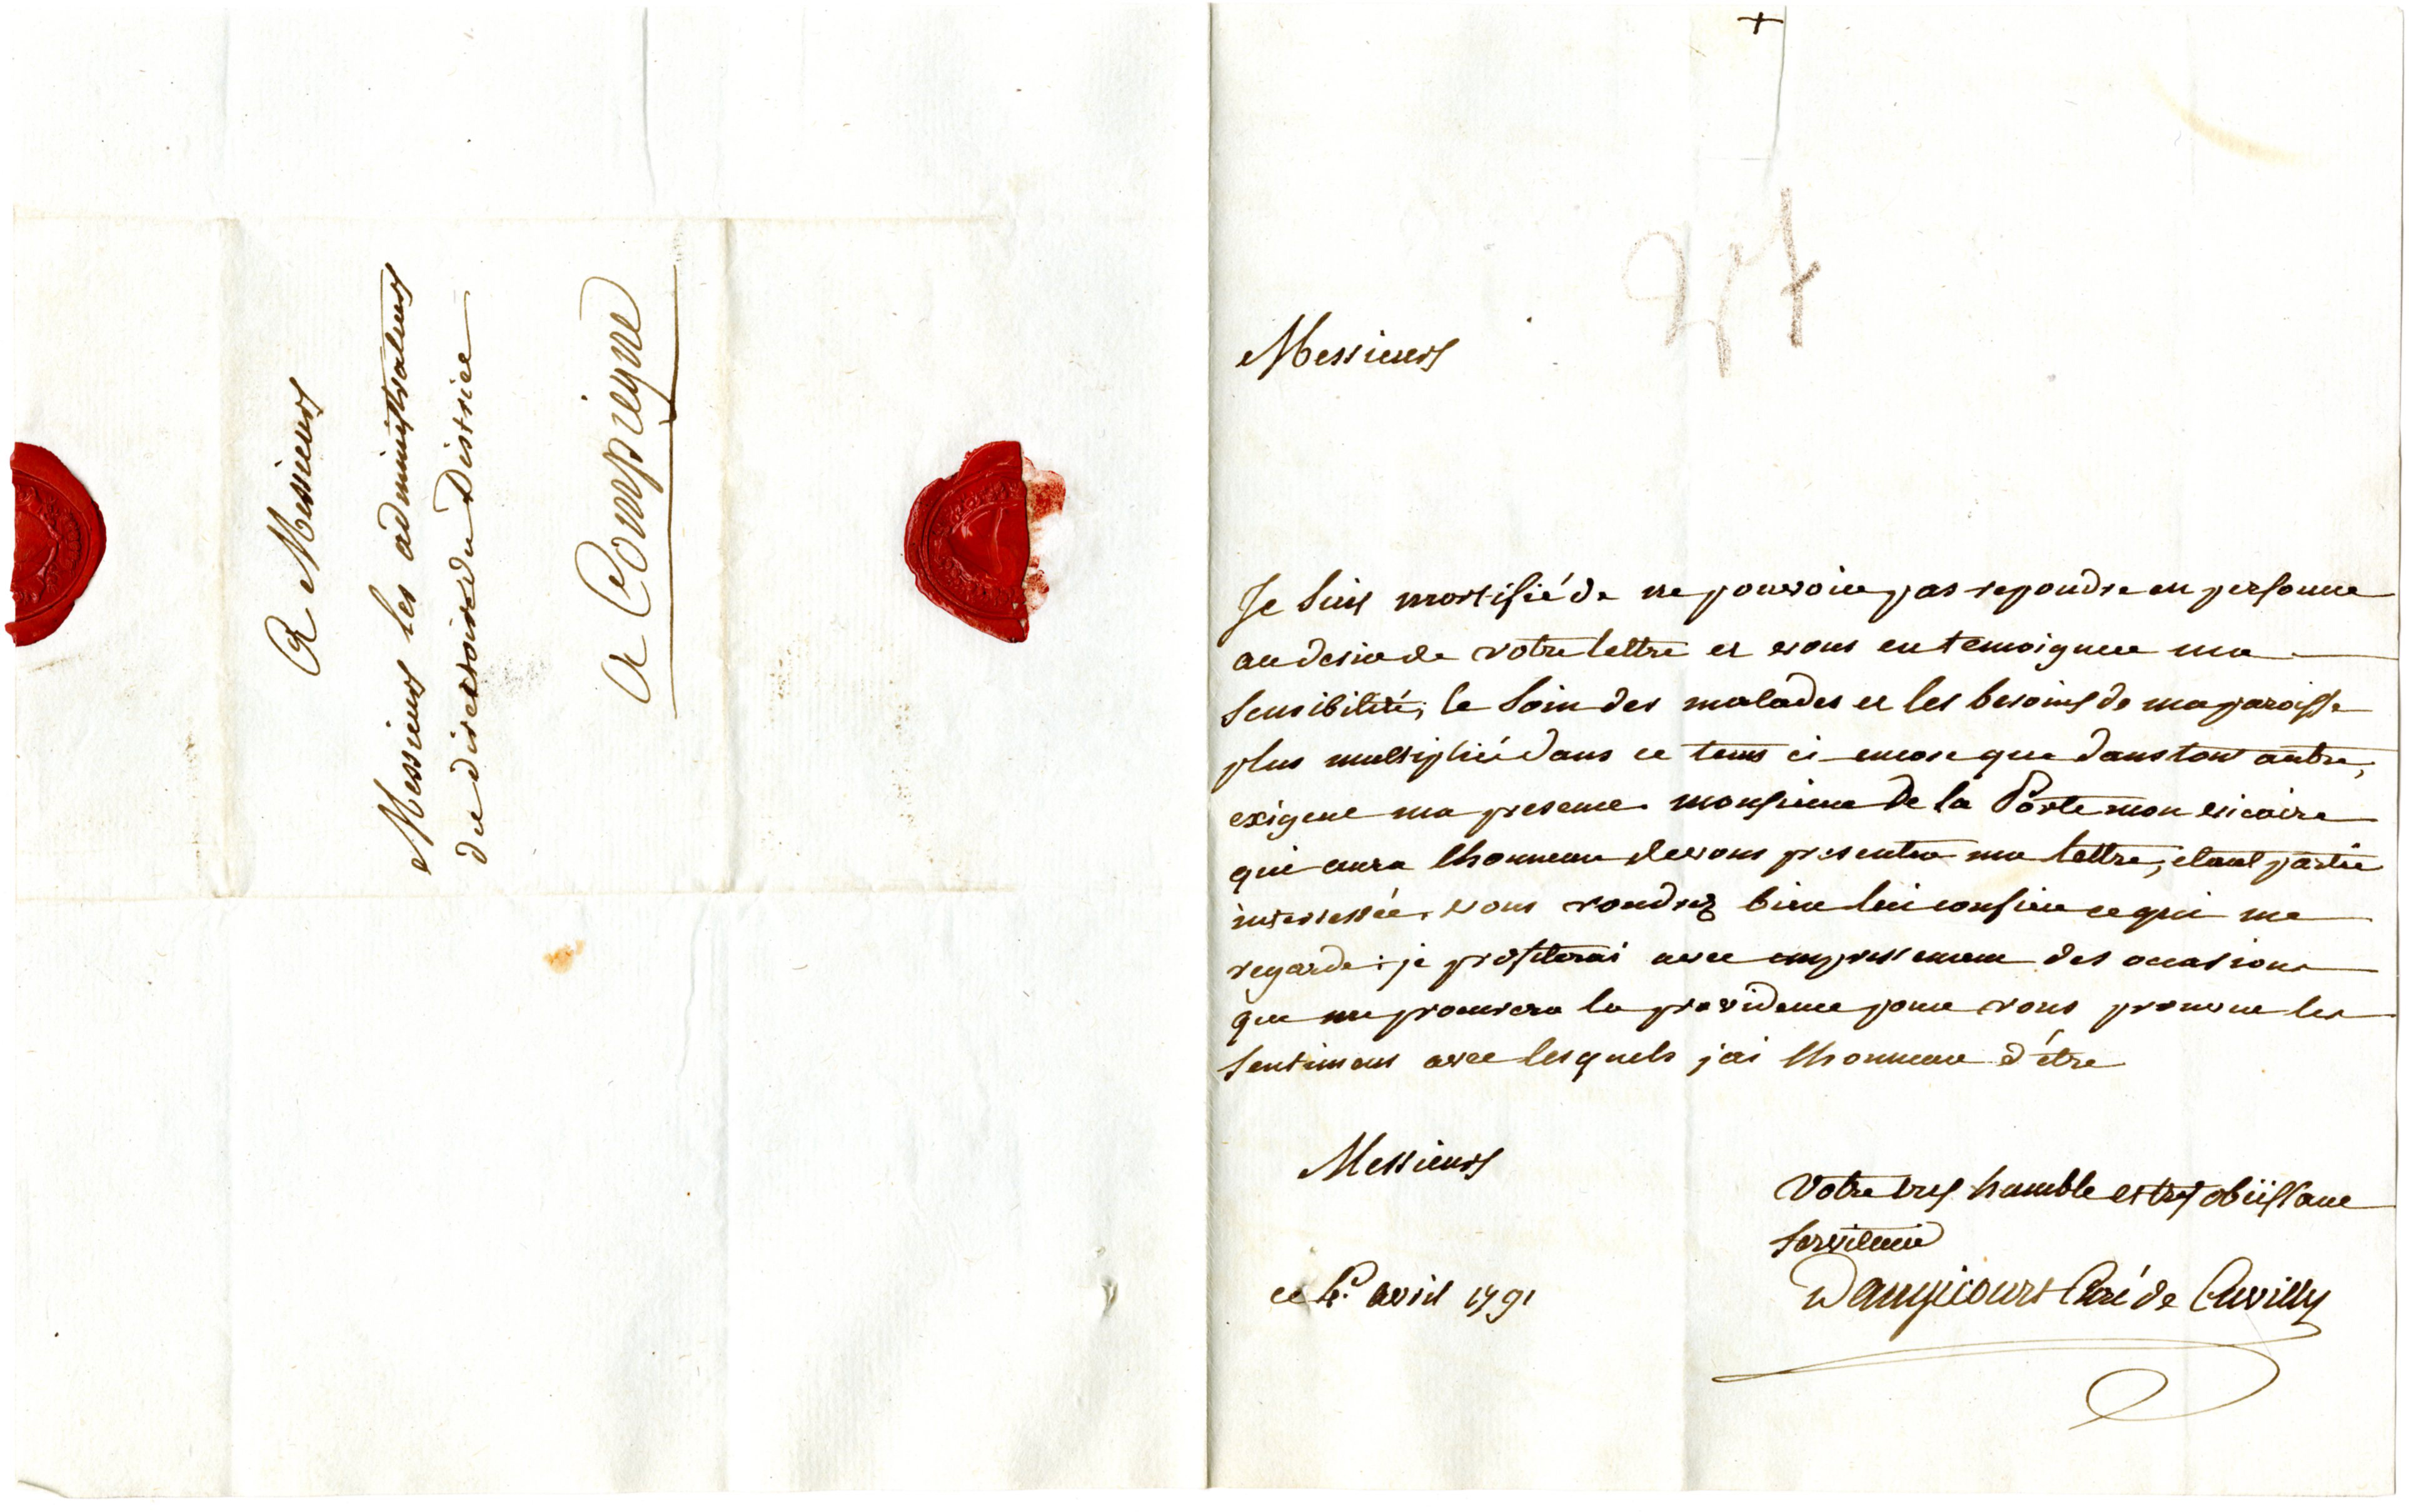 A Messieurs
Messieurs les administrateurs
du directoire du District
A Compiegne
+
Messieurs
Je suis mortifié de ne pouvoir pas repondre en personne
au desir de votre lettre et vous en temoigner ma
sensibilité; le soin des malades et les besoins de ma paroisse
plus multiplié dans ce tems ci encore que dans tout autre,
exigent ma presence. monsieur De la Porte mon vicaire
qui aura lhonneur de vous presenter ma lettre, etant partie
interessée, vous voudrez bien lui confier ce qui me
regarde: je profiterai avec empressement des occasions
que me procurera la providence pour vous prouver les
sentimens avec lesquels jai lhonneur d'être
Messieurs
Votre tres humble et tres obéissant
serviteur
ce 4e avril 1791
Curé de Cuvilly